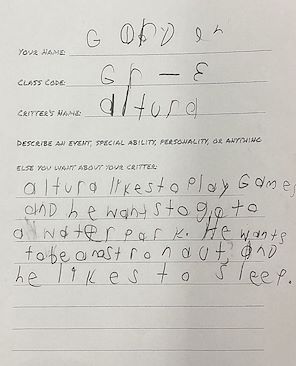 YOUR NAME: GORDEN
CLASS CODE: Gr - E
CRITTER'S NAME: altura
DESCRIBE AN EVENT, SPECIAL ABILITY, PERSONALITY, OR ANYTHING
ELSE YOU WANT ABOUT YOUR CRITTER:
altura likes to play Games
aND he wants to go to
a water park. He wants
to be an astronaut, aND
he likes to sleep.